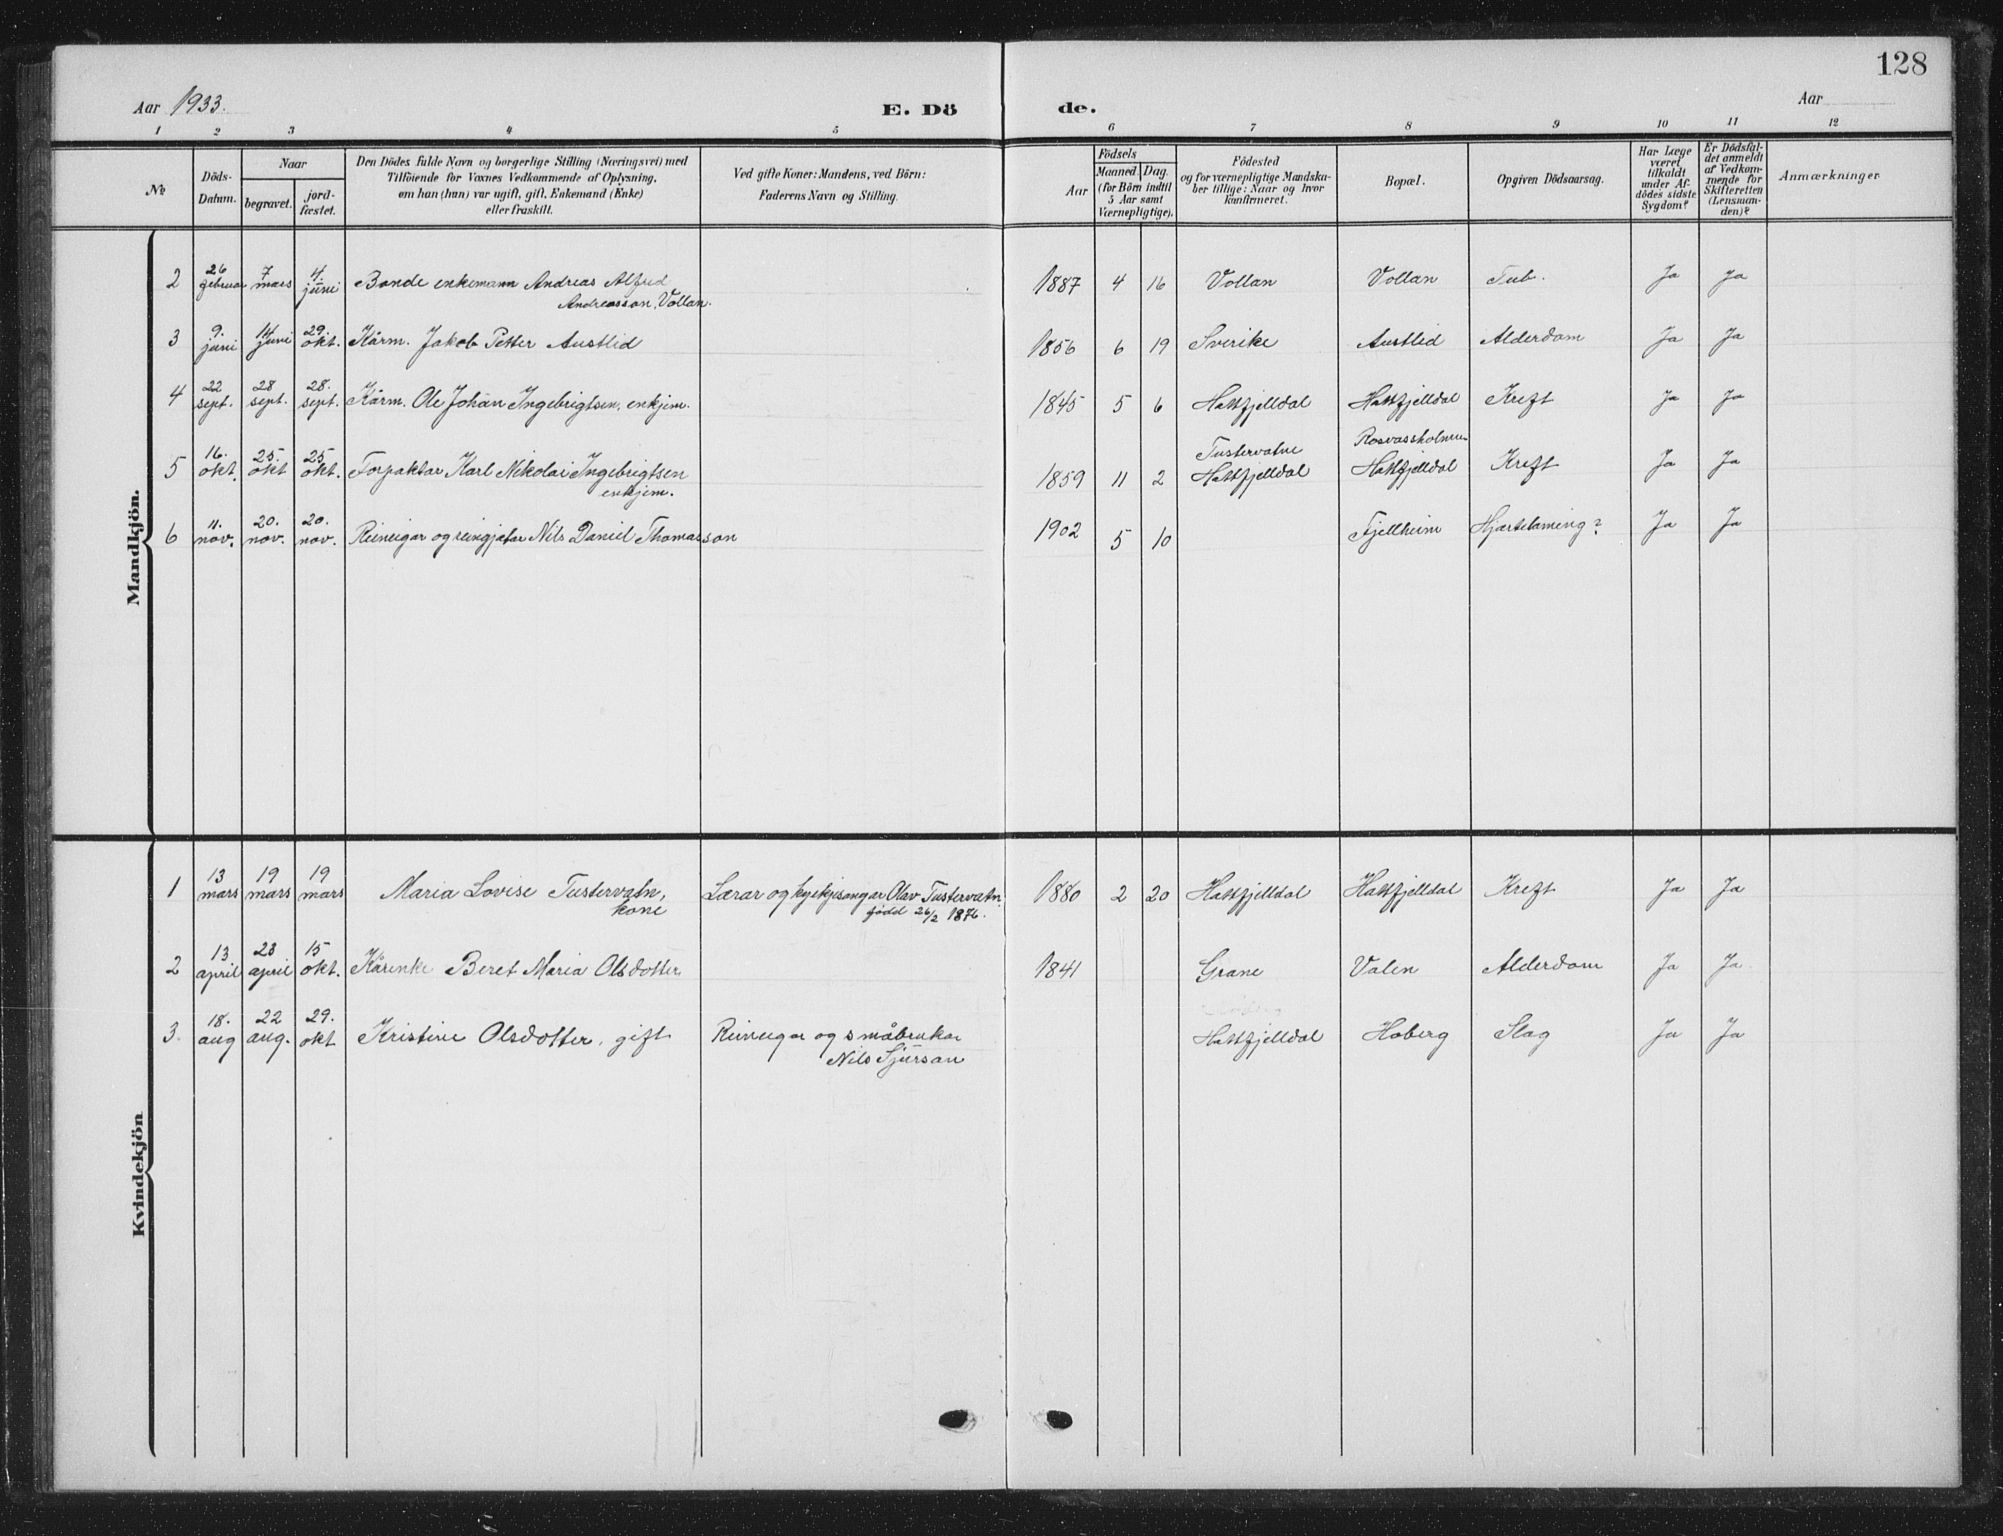 128
Aar 1933.
E. Dö
de.
Aar
1 2 3 4 5 6 7 8 9 10 11 12
No
Döds-
Datum.
Naar
begravet.
jord-
fæstet.
Den Dödes fulde Navn og borgerlige Stilling (Næringsvei) med
Tilföiende for Voxnes Vedkommende af Oplysning,
om han (hun) var ugift, gift, Enkemand (Enke)
eller fraskilt.
Ved gifte Koner: Mandens, ved Börn:
Faderens Navn og Stilling.
Aar
Födsels
Maaned Dag
(for Börn indtil
5 Aar samt
Værnepligtige).
Födested
og for værnepligtige Mandska-
ber tillige: Naar og hvor
konfirmeret.
Bopæl.
Opgiven Dödsaarsag.
Har Læge
været
tilkaldt
under Af-
dödes sidste
Sygdom?
Er Dödsfal-
det anmeldt
af Vedkom-
mende for
Skifteretten
(Lensman-
den)?
Anmærkninger
Mandkjön.
2 26 februar 7 mars 4. juni Bonde enkemann Andreas Alfred
Andreasson, Vollan. 1887 4 16 Vollan Vollan Tub. Ja Ja
3 9. juni 14 juni 29. okt. Kårm. Jakob Petter Austlid 1856 6 19 Sverike Austlid Alderdom Ja Ja
4 22 sept. 28 sept. 28. sept. Kårm. Ole Johan Ingebrigtsen, enkjem. 1845 5 6 Hattfjelldal Hattfjelldal Kreft Ja Ja
Tustervatne Rosvassholmen
5 16. okt. 25. okt 25 okt. Forpaktar Karl Nikolai Ingebrigtsen
enkjem. 1859 11 2 Hattfjelldal Hattfjelldal Kreft Ja Ja
6 11. nov. 20. nov. 20. nov. Reineigar og reingjetar Nils Daniel Thomasson 1902 5 10 Fjellheim Hjartelaming? Ja Ja
Kvindekjön
1 13 mars 19 mars 19 mars Maria Lovise Tustervatn,
kone Lærar og kyrkjesongar Olav Tustervatn.
född 26/2 1876. 1880 2 20 Hattfjelldal Hattfjelldal Kreft Ja Ja
2 13 april 23 april 15 okt. Kårenke Beret Maria Olsdotter 1841 Grane Valen Alderdom Ja Ja
3. 18. aug 22 aug. 29. okt Kristine Olsdotter, gift Reineigar og småbrukar
Nils Sjurson Hattfjelldal Hoberg Slag Ja Ja